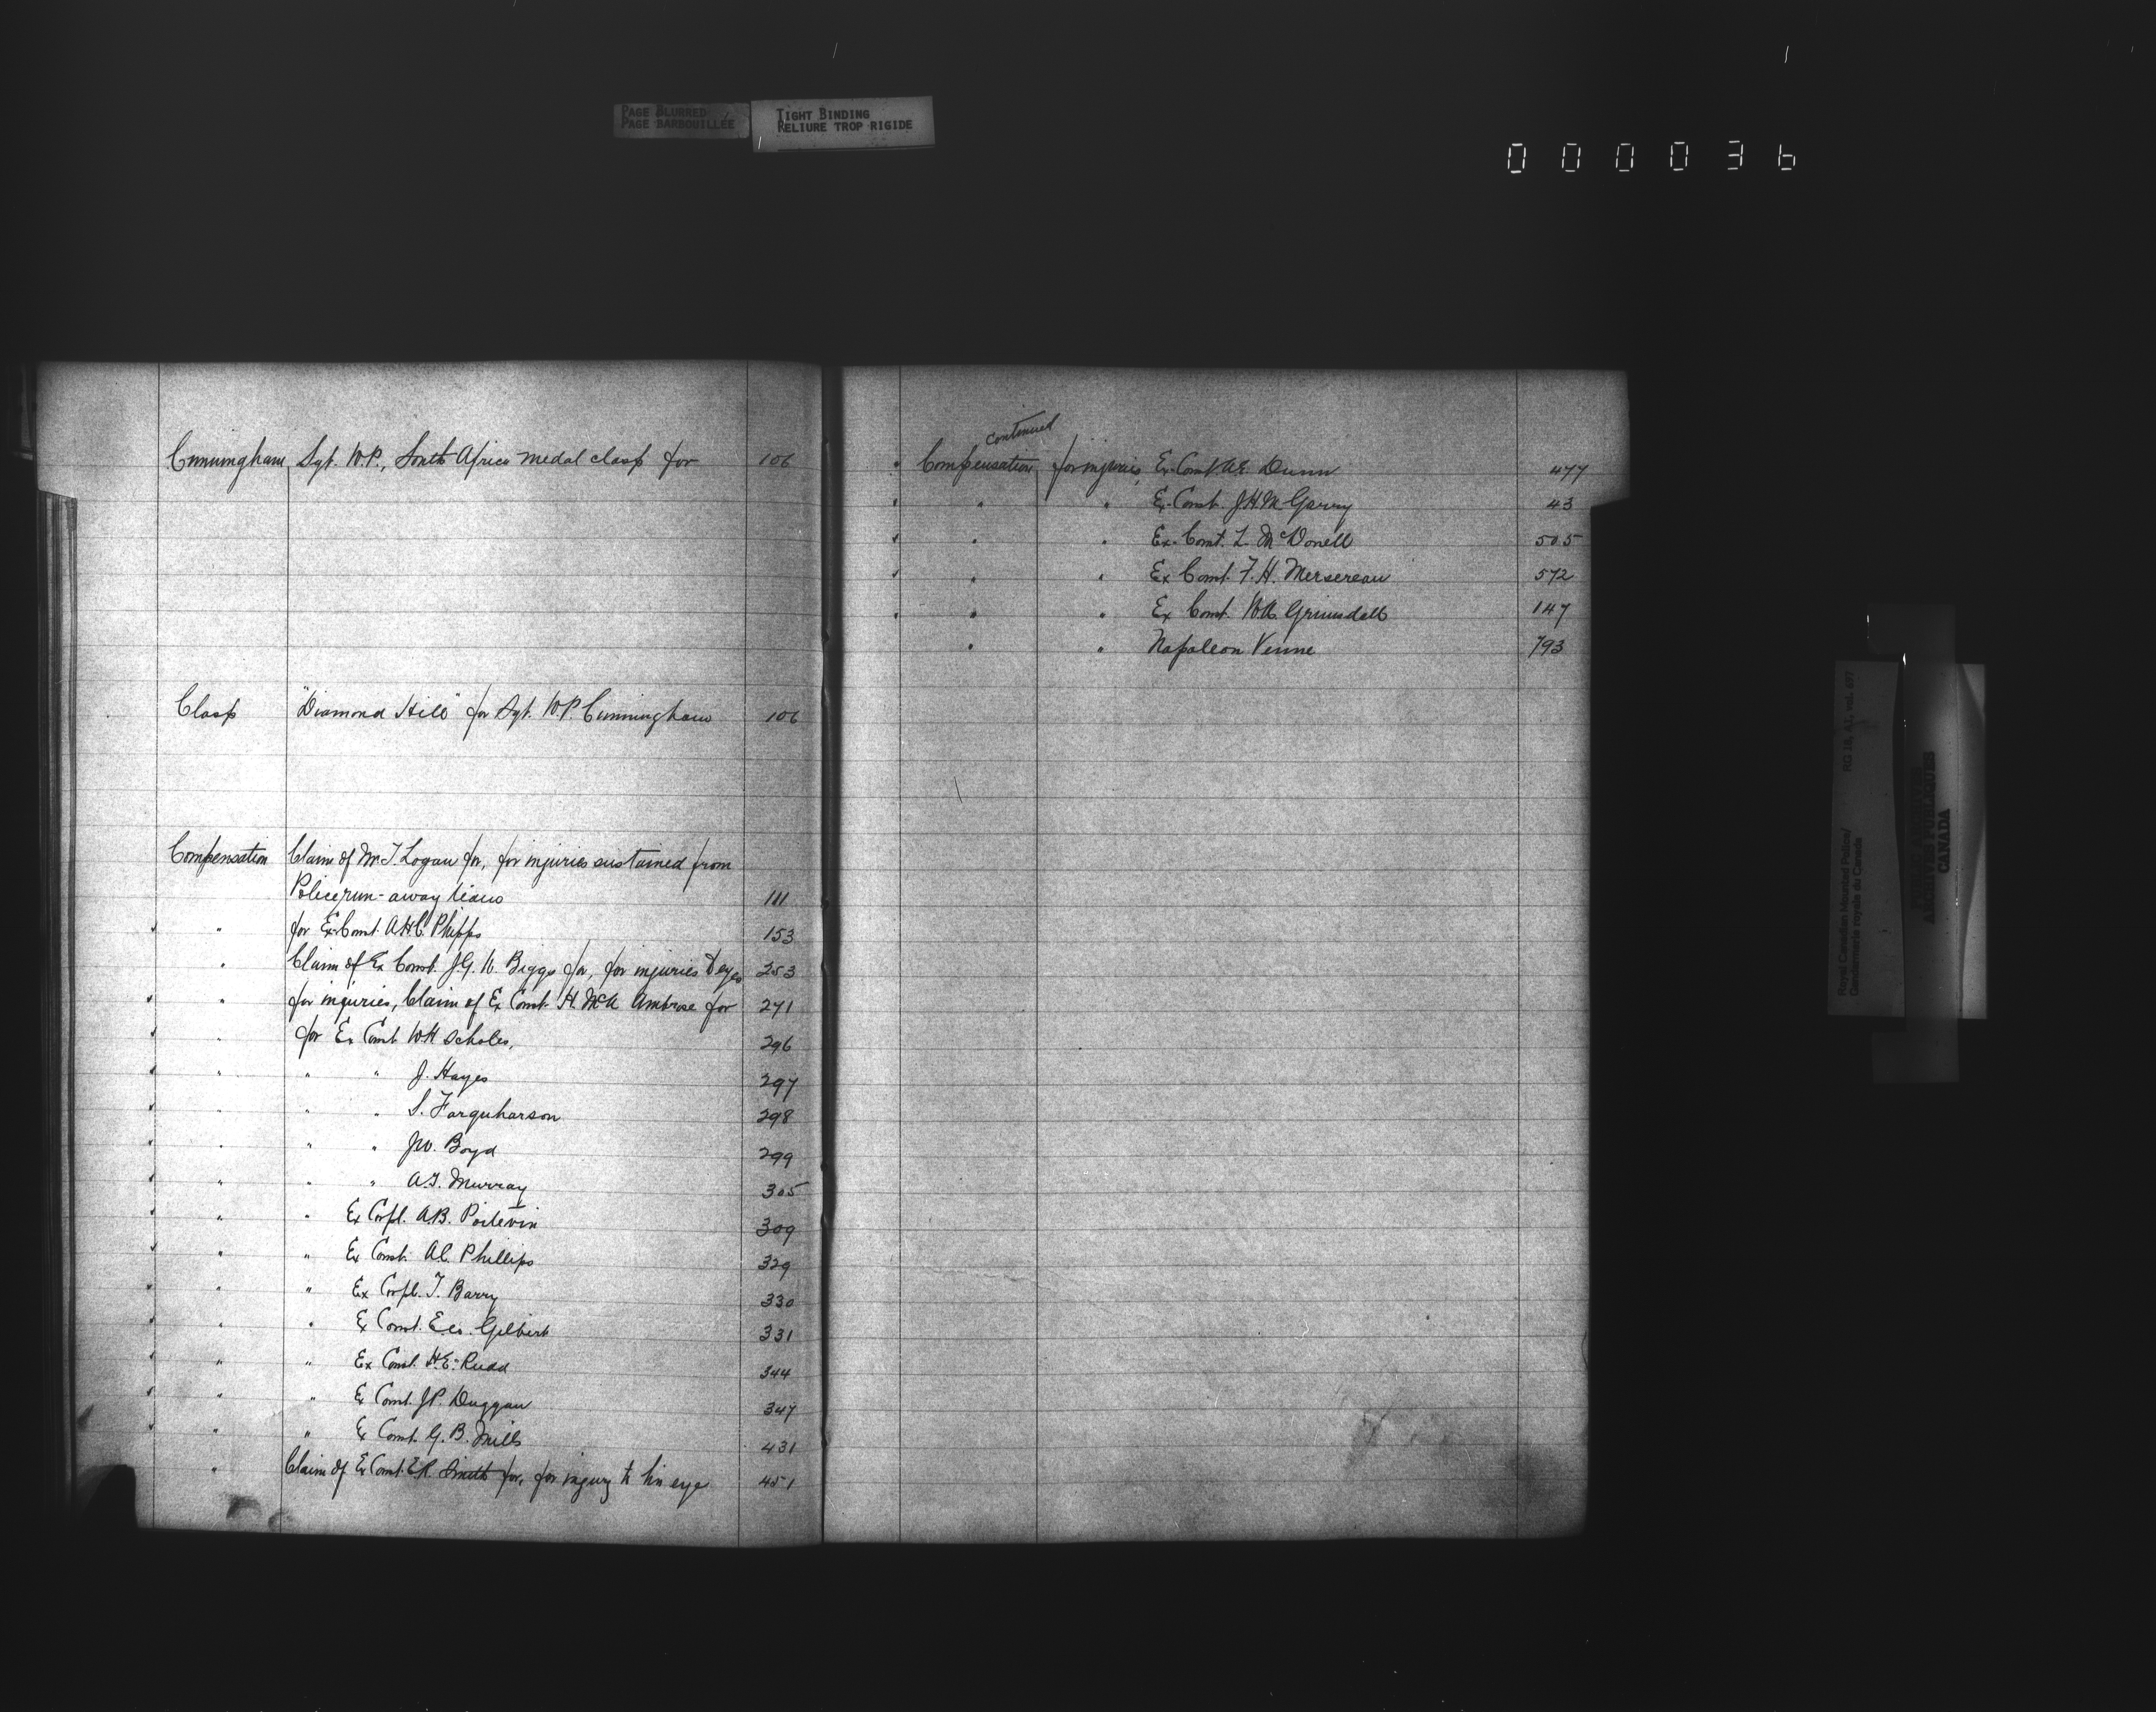 PAGE BLURRED
PAGE BARBOUILLÉE
TIGHT BINDING
RELIURE TROP RIGIDE
000036
Cunningham Sgt. W.P., South Africa medal clasp for 106
Clasp "Diamond Hill" for Sgt. W.P. Cunningham 106
Compensation Claim of Mr J. Logan for, for injuries sustained from
Police run-away team 111
" for Ex Const. A.H.C. Phipps 153
" Claim of Ex Const. J.G.W. Biggs for, for injuries to eyes 253
" for injuries, Claim of Ex Const. H. McA Ambrose for 271
" for Ex Const. W.H Scholes, 296
" " " J. Hayes 297
" " " S. Farquharson 298
" " " J.W. Boyd 299
" " " A.J. Murray 305
" " Ex Corpl. A.B. Poitevin 309
" " Ex Const. A.C. Phillips 329
" " Ex Corpl. T. Barry 330
" " Ex Const. Gilbert 331
" " Ex Const. H.E. Rudd 344
" " Ex Const. J.P. Duggan 347
" " Ex Const. G.B. Mills 431
" Claim of Ex Const. E.R. Smith for, for injury to his eye 451
continued
Compensation for injuries, Ex-Const. A.E. Dunn 477
" " Ex-Const. J.H. McGarry 43
" " Ex-Const. L. McDonell 505
" " Ex Const. F.H. Mersereau 572
" " Ex Const. W.A. Grimsdell 147
" " Napoleon Venne 793
Royal Canadian Mounted Police/
Gendarmerie royale du Canada
RG 18, A1, vol. 697
PUBLIC ARCHIVES
ARCHIVES PUBLIQUES
CANADA